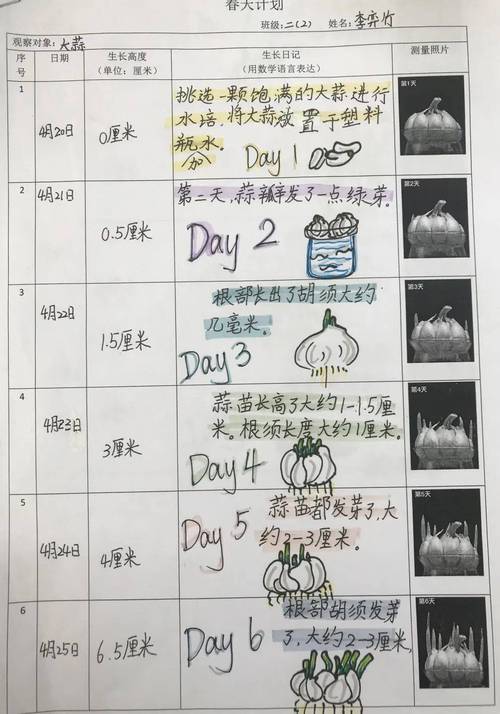 春天计划
班级:二(2) 姓名:李弈竹
观察对象:大蒜
序号 日期 生长高度（单位：厘米） 生长日记（用数学语言表达） 测量照片
1 4月20日 0厘米
挑选一颗饱满的大蒜进行
水培,将大蒜放置于塑料
瓶加水。
Day 1
第1天
2 4月21日 0.5厘米
第二天,蒜瓣发了一点绿芽。
Day 2
第2天
3 4月22日 1.5厘米
根部长出了胡须大约
几毫米。
Day 3
第3天
4 4月23日 3厘米
蒜苗长高了大约1-1.5厘
米。根须长度大约1厘米。
Day 4
第4天
5 4月24日 4厘米
蒜苗都发芽了,大
约2-3厘米。
Day 5
第5天
6 4月25日 6.5厘米
根部胡须发芽
了,大约2-3厘米,
Day 6
第6天